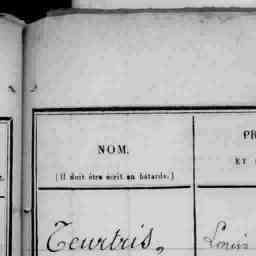 NOM.
PR
(Il doit être écrit en bâtarde.)
ET
Teurtris,
Louis